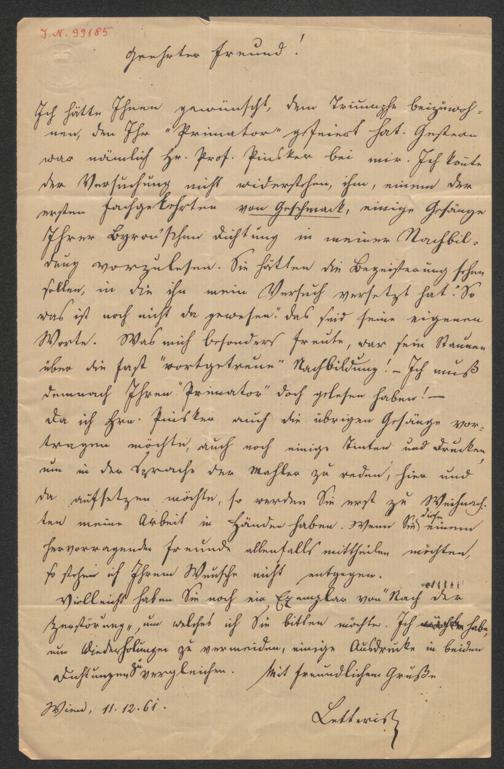 J. N. 99185
Geehrter Freund!
Ich hätte Ihnen gewünscht, dem Triumphe beizuwoh-
nen, den Ihr "Primator" gefeiert hat. Gestern
war nämlich Hr. Prof. Pinsker bei mir. Ich konnte
der Versuchung nicht widerstehen, ihm, einem der
ersten Fachgelehrten von Geschmack, einige Gesänge
Ihrer Byron'schen Dichtung in meiner Nachbil-
dung vorzulesen. Sie hätten die Begeisterung sehen
sollen, in die ihn mein Versuch versetzt hat. "So
was ist noch nicht da gewesen" das sind seine eigenen
Worte. Was mich besonders freute, war sein Staunen
über die fast "wortgetreue" Nachbildung! – Ich muß
demnach Ihren "Primator" doch gelesen haben! –
Da ich Hrn. Pinsker auch die übrigen Gesänge vor-
tragen möchte, auch noch einige Tinten und Drucker,
um in der Sprache der Mahler zu reden, hier und
da aufsetzen möchte, so werden Sie erst zu Weihnach-
ten meine Arbeit in Händen haben. Wenn Sie diese einem
hervorragenden Freunde allenfalls mittheilen möchten,
so stehe ich Ihrem Wunsche nicht entgegen.
Vielleicht haben Sie noch ein Exemplar von "Nach der
Zerstörung", um welches ich Sie bitten möchte. Ich habe,
um Wiederholungen zu vermeiden, einige Ausdrücke in beiden
Dichtungen vergleichen. Mit freundlichem Gruße
Wien, 11. 12. 61.
Letteris